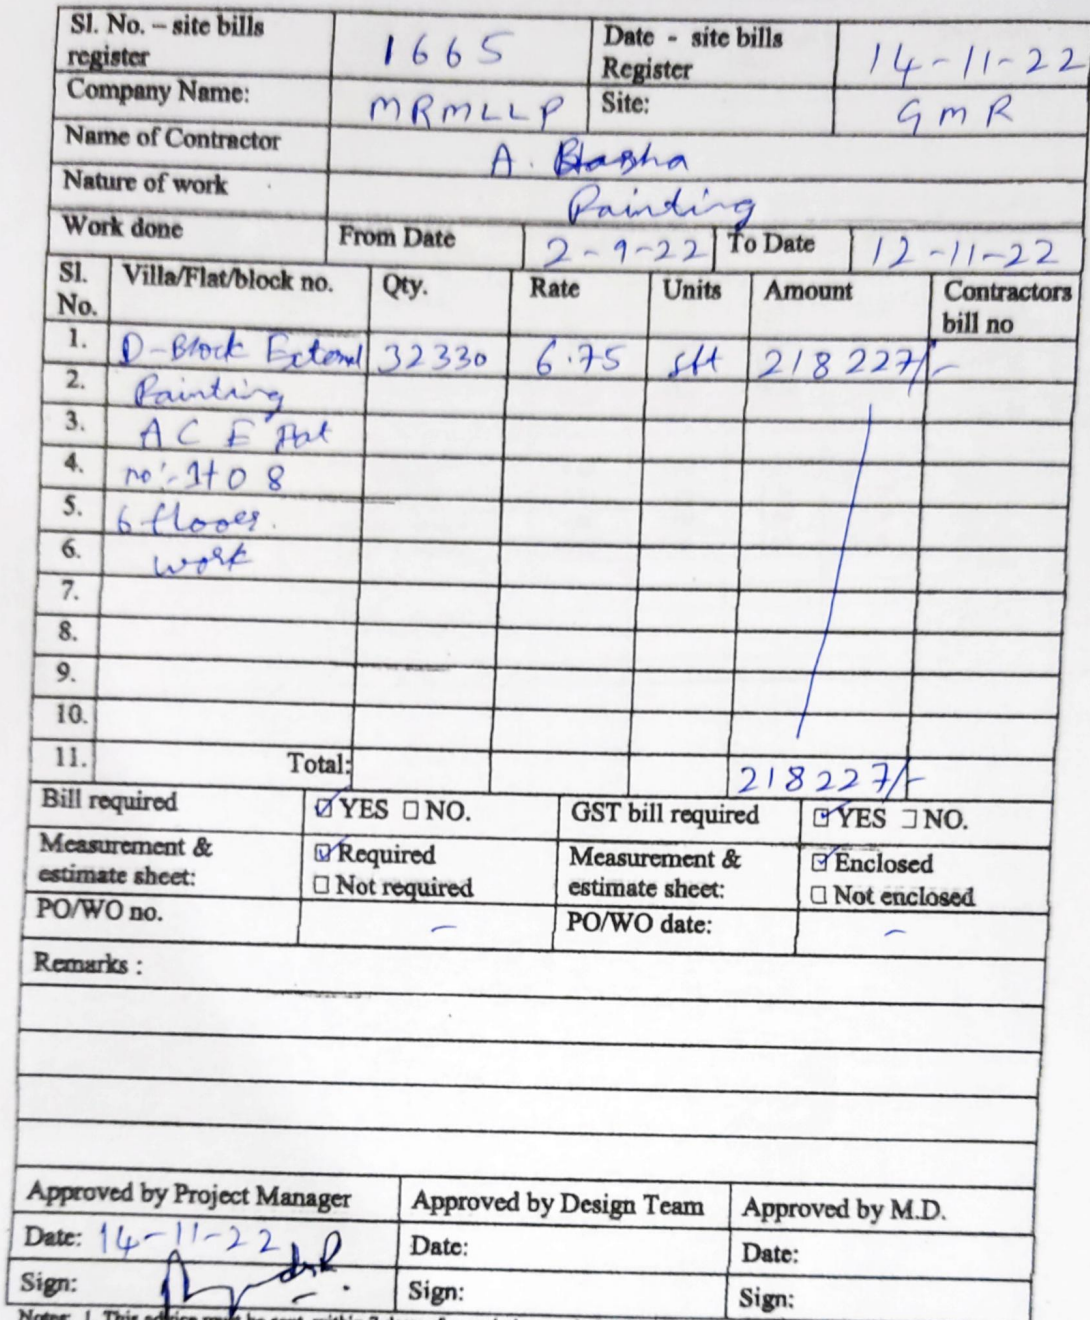 Sl. No. – site bills register 1665 Date - site bills Register 14-11-22
Company Name: MRMLLP Site: GMR
Name of Contractor A. Basha
Nature of work Painting
Work done From Date 2-9-22 To Date 12-11-22
Sl. No. Villa/Flat/block no. Qty. Rate Units Amount Contractors bill no
1. D-Block External 32330 6.75 sft 218227/-
2. Painting
3. A C E Flat
4. no:- 1to 8
5. 6 floors.
6. work
7.
8.
9.
10.
11. Total: 218227/-
Bill required ☑ YES ☐ NO. GST bill required ☑ YES ☐ NO.
Measurement & estimate sheet: ☑ Required ☐ Not required Measurement & estimate sheet: ☑ Enclosed ☐ Not enclosed
PO/WO no. – PO/WO date: –
Remarks :
Approved by Project Manager Approved by Design Team Approved by M.D.
Date: 14-11-22 Date: Date:
Sign: Sign: Sign: